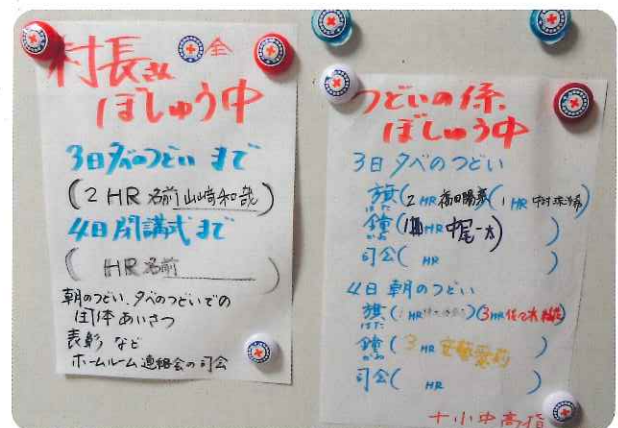 村長さん
ぼしゅう中
3日夕べのつどい まで
(2 HR 名前 山崎和哉)
4日閉講式まで
( HR 名前 )
朝のつどい、夕べのつどいでの
団体あいさつ
表彰 など
ホームルーム連絡会の司会
つどいの係、
ぼしゅう中
3日 夕べのつどい
旗(2 HR )(1 HR 中村 )
鐘( HR 中尾一太 )
司会( HR )
4日 朝のつどい
旗( HR )(3 HR 佐々木 )
鐘(3 HR )
司会( HR )